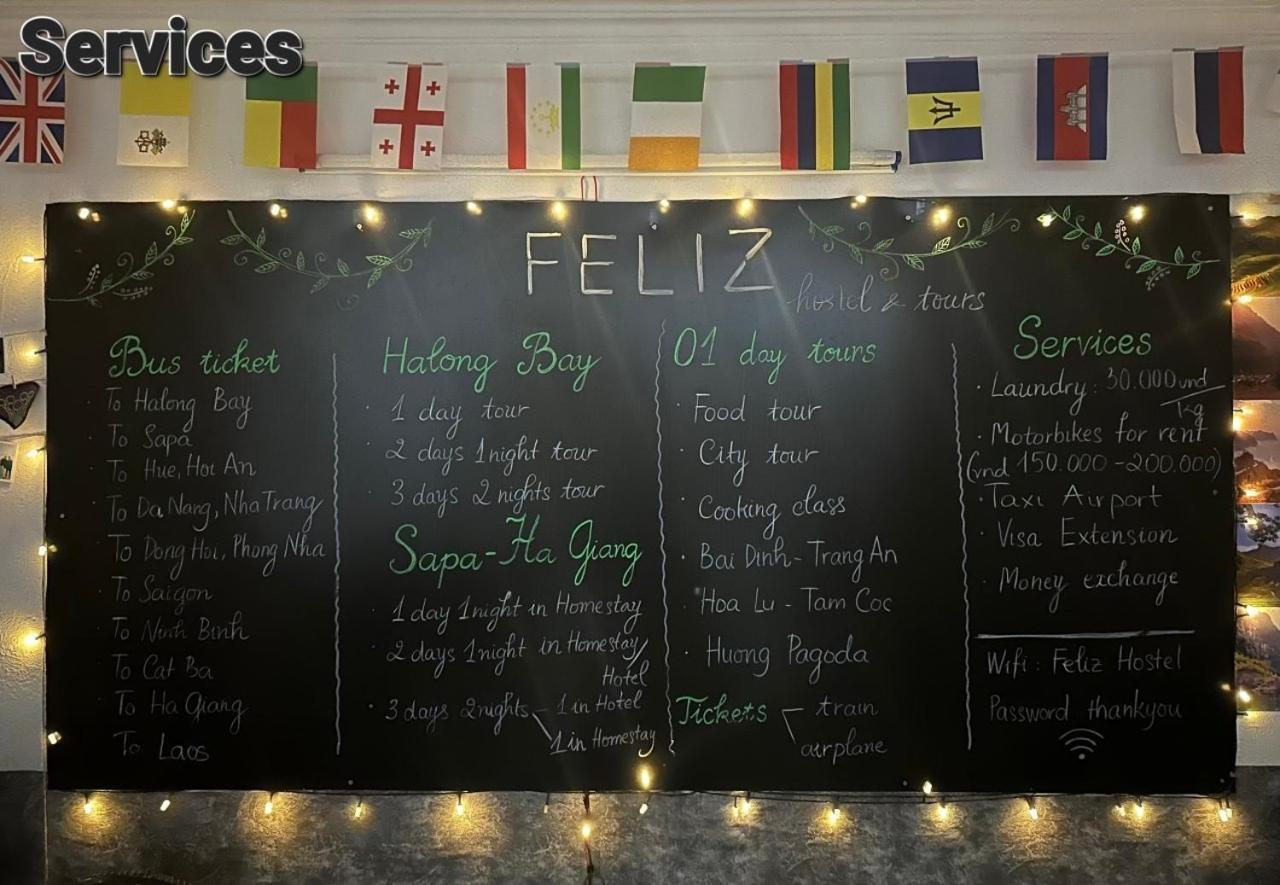 Services
FELIZ
hostel & tours
Bus ticket
To Halong Bay
To Sapa
To Hue, Hoi An
To Da Nang, Nha Trang
To Dong Hoi, Phong Nha
To Saigon
To Ninh Binh
To Cat Ba
To Ha Giang
To Laos
Halong Bay
1 day tour
2 days 1night tour
3 days 2 nights tour
Sapa-Ha Giang
1 day 1night in Homestay
2 days 1night in Homestay/
Hotel
3 days 2nights - 1 in Hotel
1 in Homestay
01 day tours
Food tour
City tour
Cooking class
Bai Dinh - Trang An
Hoa Lu - Tam Coc
Huong Pagoda
Tickets - train
airplane
Services
Laundry: 30.000vnd/
1kg
Motorbikes for rent
(vnd 150.000 - 200.000)
Taxi Airport
Visa Extension
Money exchange
Wifi: Feliz Hostel
Password thankyou